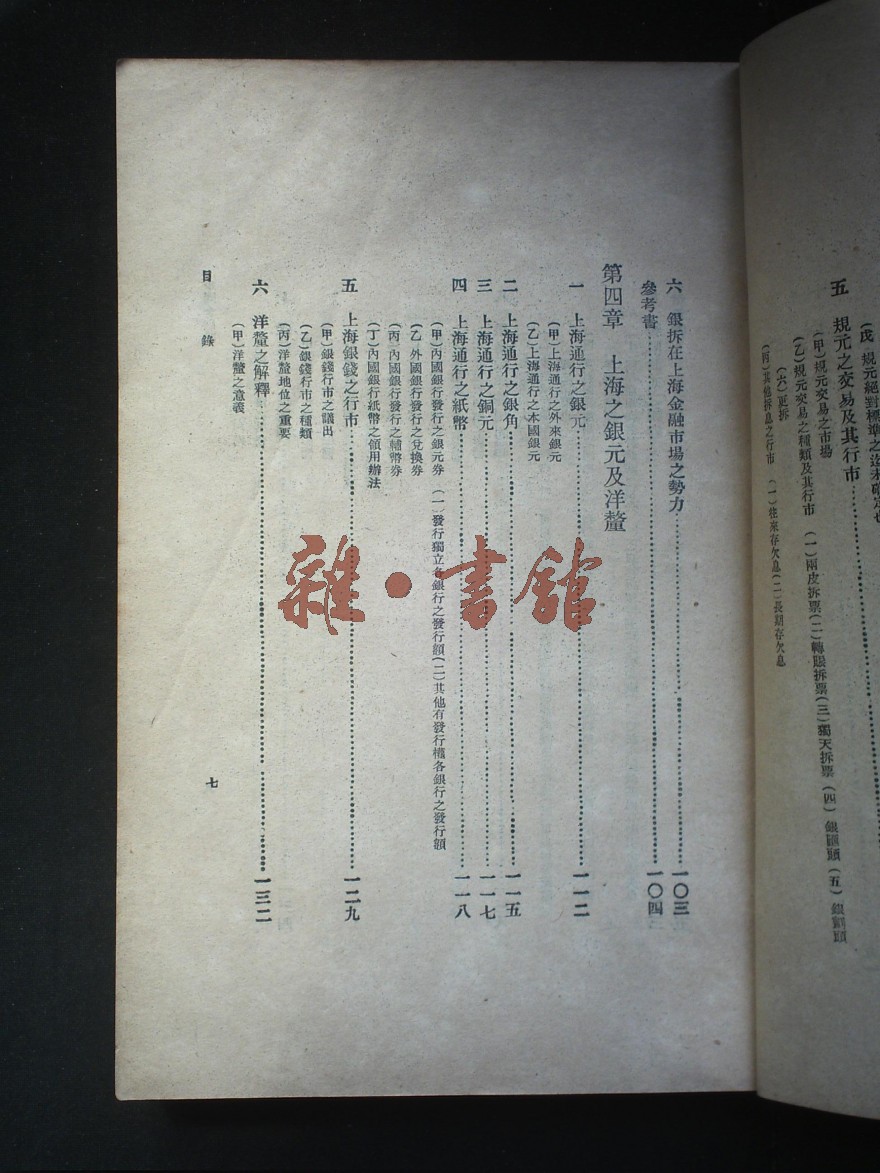 五 規元之交易及其行市
(甲)規元交易之市場
(乙)規元交易之種類及其行市 (一)兩皮拆票(二)轉賬拆票(三)獨天拆票(四)銀匯頭(五)銀劃頭
(六)更拆
(丙)其他拆息之行市 (一)往來存欠息(二)長期存欠息
六 銀拆在上海金融市場之勢力 一〇三
參考書 一〇四
第四章 上海之銀元及洋釐
一 上海通行之銀元 一一二
(甲)上海通行之外來銀元
(乙)上海通行之本國銀元
二 上海通行之銀角 一一五
三 上海通行之銅元 一一七
四 上海通行之紙幣 一一八
(甲)內國銀行發行之銀元券 (一)發行獨立各銀行之發行額(二)其他有發行權各銀行之發行額
(乙)外國銀行發行之兌換券
(丙)內國銀行發行之輔幣券
(丁)內國銀行紙幣之領用辦法
五 上海銀錢之行市 一二九
(甲)銀錢行市之議出
(乙)銀錢行市之種類
(丙)洋釐地位之重要
六 洋釐之解釋 一三二
(甲)洋釐之意義
目錄
七
雜·書館